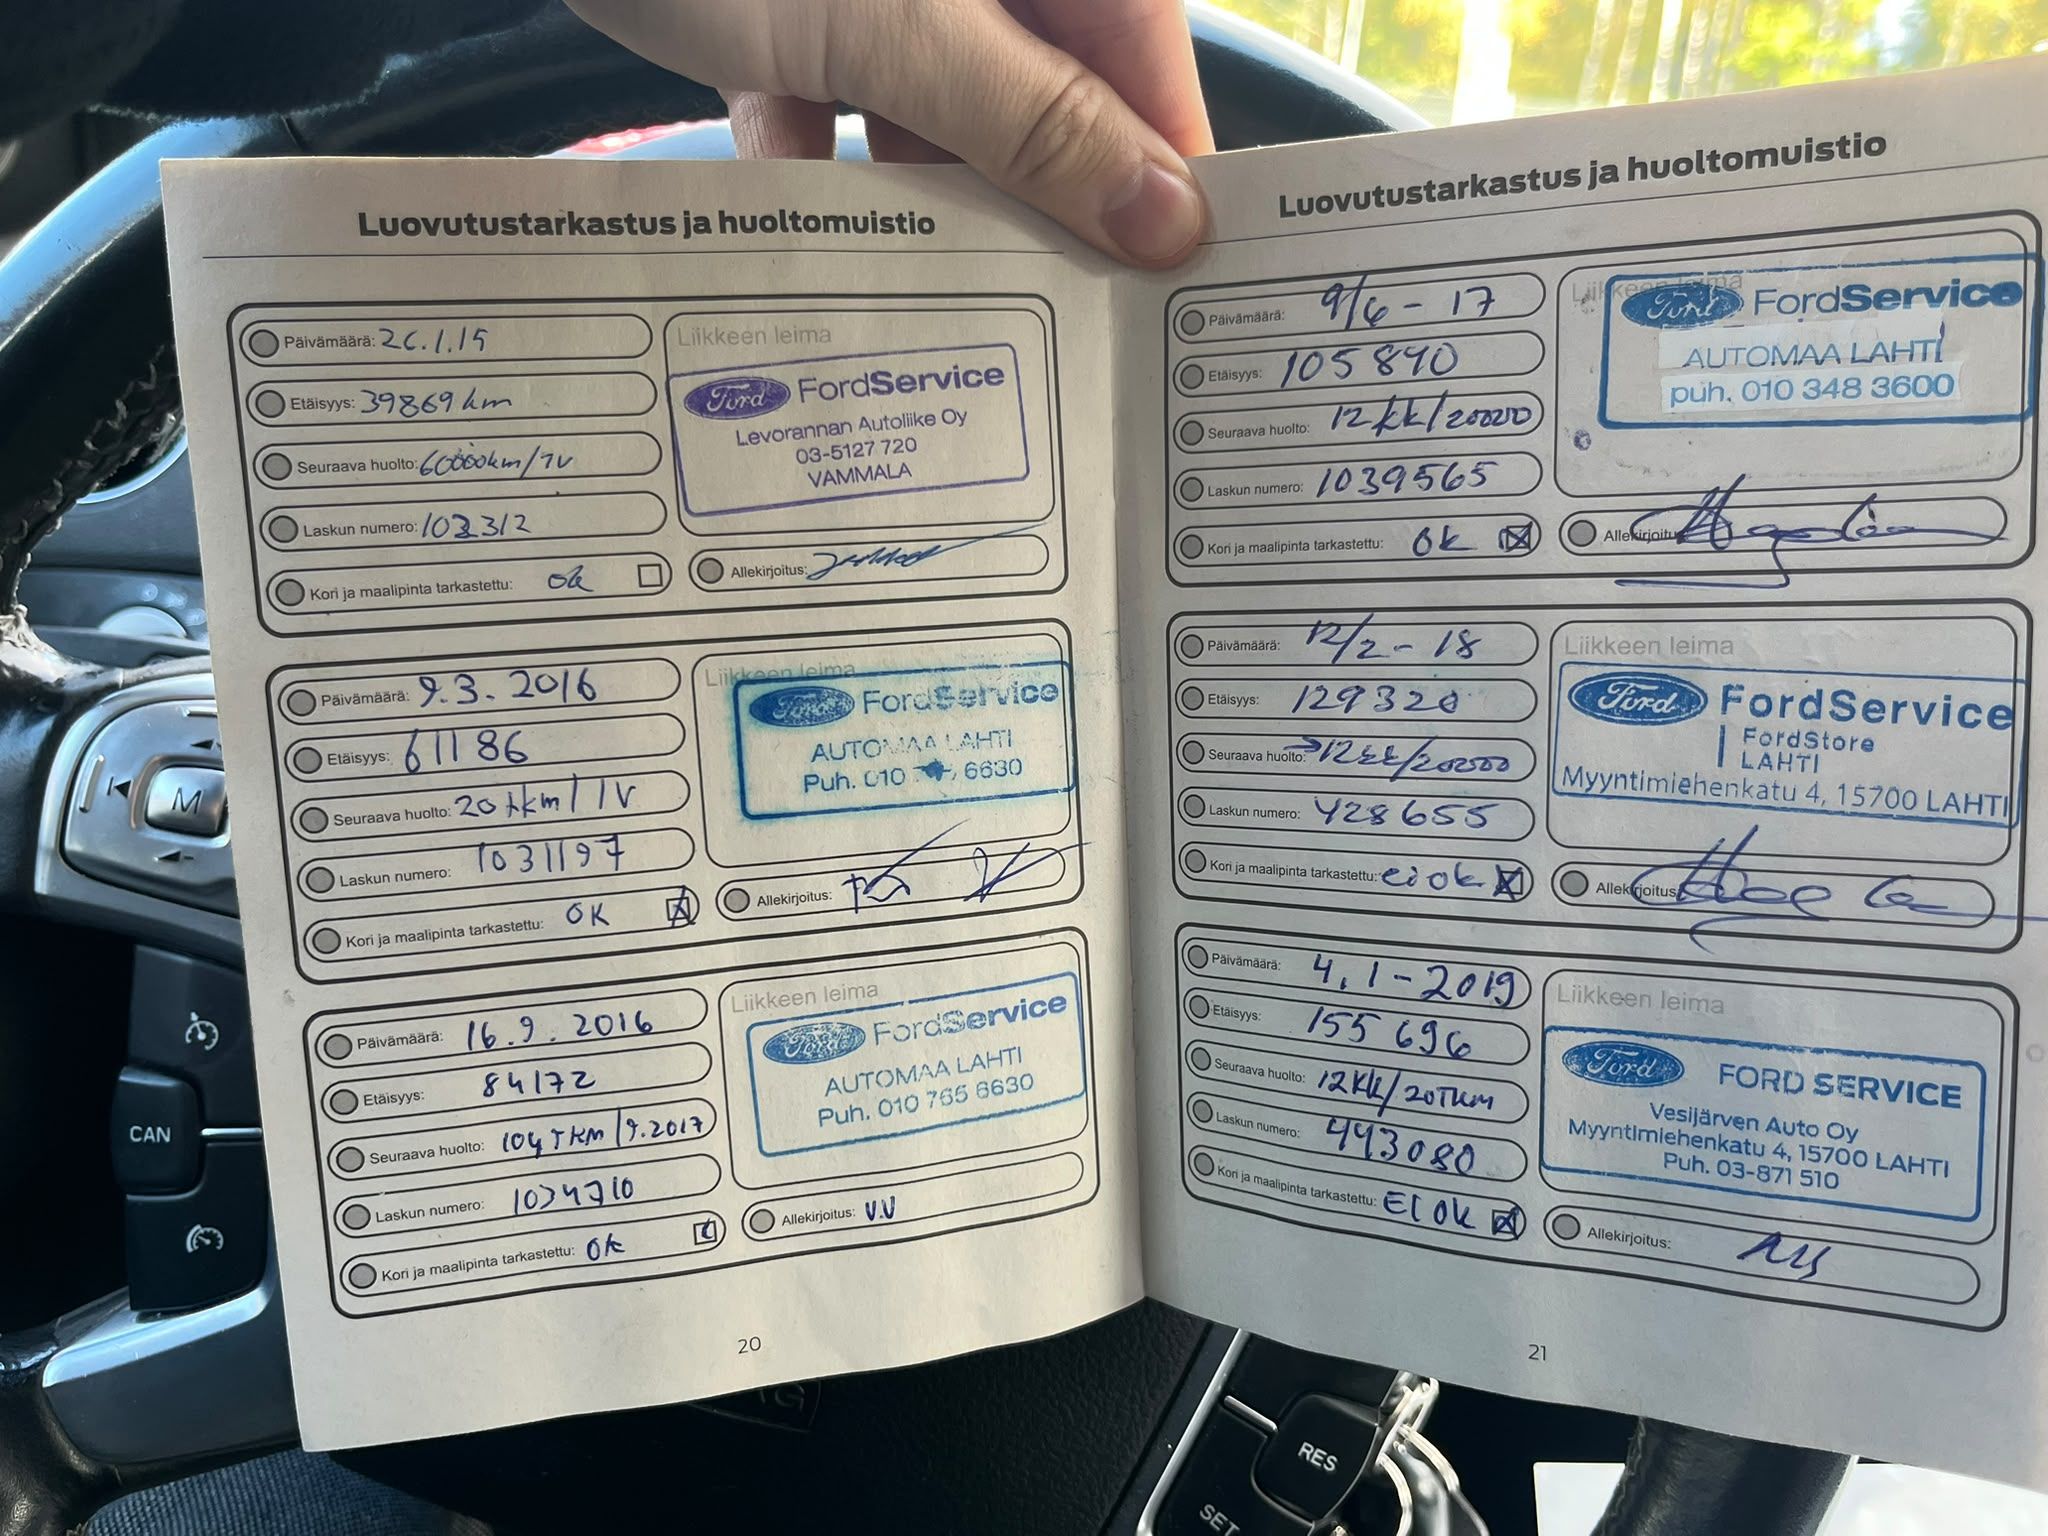 Luovutustarkastus ja huoltomuistio
Päivämäärä: 26.1.15
Etäisyys: 39869 km
Seuraava huolto: 60000km/1v
Laskun numero: 102312
Kori ja maalipinta tarkastettu: ok
Liikkeen leima
Ford FordService
Levorannan Autoliike Oy
03-5127 720
VAMMALA
Allekirjoitus:
Päivämäärä: 9.3.2016
Etäisyys: 61186
Seuraava huolto: 20tkm/1V
Laskun numero: 1031197
Kori ja maalipinta tarkastettu: OK
Liikkeen leima
Ford FordService
AUTOMAA LAHTI
Puh. 010 6630
Allekirjoitus:
Päivämäärä: 16.9.2016
Etäisyys: 84172
Seuraava huolto: 104TKM/9.2017
Laskun numero: 1034710
Kori ja maalipinta tarkastettu: OK
Liikkeen leima
Ford FordService
AUTOMAA LAHTI
Puh. 010 765 6630
Allekirjoitus: V.V
20
Luovutustarkastus ja huoltomuistio
Päivämäärä: 9/6-17
Etäisyys: 105840
Seuraava huolto: 12kk/20000
Laskun numero: 1039565
Kori ja maalipinta tarkastettu: OK
Liikkeen leima
Ford FordService
AUTOMAA LAHTI
puh. 010 348 3600
Allekirjoitus:
Päivämäärä: 12/2-18
Etäisyys: 129320
Seuraava huolto: 12kk/20000
Laskun numero: 428655
Kori ja maalipinta tarkastettu: ei ok
Liikkeen leima
Ford FordService
FordStore
LAHTI
Myyntimiehenkatu 4, 15700 LAHTI
Allekirjoitus:
Päivämäärä: 4.1-2019
Etäisyys: 155 696
Seuraava huolto: 12KK/20TKM
Laskun numero: 443080
Kori ja maalipinta tarkastettu: EI OK
Liikkeen leima
Ford FORD SERVICE
Vesijärven Auto Oy
Myyntimiehenkatu 4, 15700 LAHTI
Puh. 03-871 510
Allekirjoitus:
21
M
CAN
RES
SET